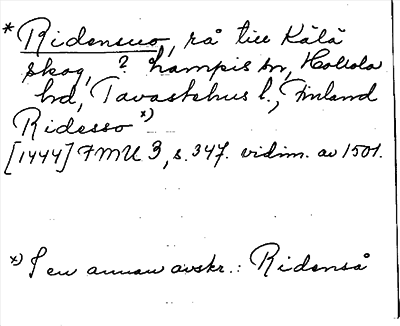 * Ridensuo, rå till Kälä
skog, ? Hampis sn, Hollola
hd, Tavastehus l., Finland
Ridesso x)
[1444] FMU 3, s. 347. vidim. av 1501.
x) I en annan avskr.: Ridenså